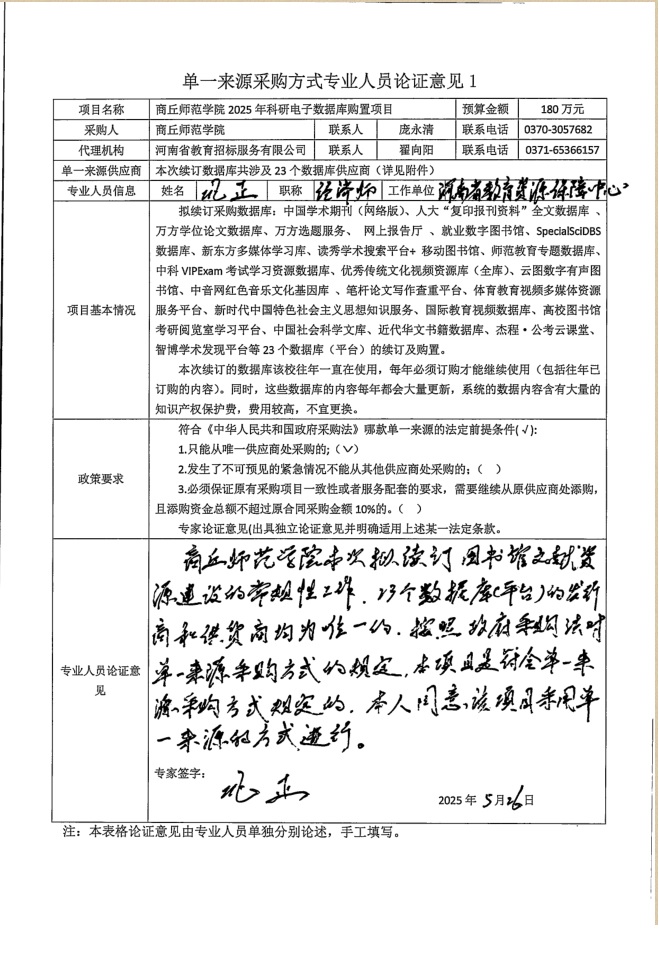 单一来源采购方式专业人员论证意见 1
项目名称 商丘师范学院 2025 年科研电子数据库购置项目 预算金额 180 万元
采购人 商丘师范学院 联系人 庞永清 联系电话 0370-3057682
代理机构 河南省教育招标服务有限公司 联系人 翟向阳 联系电话 0371-65366157
单一来源供应商 本次续订数据库共涉及 23 个数据库供应商（详见附件）
专业人员信息 姓名 正 职称 经济师 工作单位 河南省教育资源保障中心
项目基本情况
拟续订采购数据库：中国学术期刊（网络版）、人大“复印报刊资料”全文数据库 、
万方学位论文数据库、万方选题服务、 网上报告厅 、就业数字图书馆、SpecialSciDBS
数据库、新东方多媒体学习库、读秀学术搜索平台+ 移动图书馆、师范教育专题数据库、
中科 VIPExam 考试学习资源数据库、优秀传统文化视频资源库（全库）、云图数字有声图
书馆、中音网红色音乐文化基因库 、笔杆论文写作查重平台、体育教育视频多媒体资源
服务平台、新时代中国特色社会主义思想知识服务、国际教育视频数据库、高校图书馆
考研阅览室学习平台、中国社会科学文库、近代华文书籍数据库、杰程•公考云课堂、
智博学术发现平台等 23 个数据库（平台）的续订及购置。
本次续订的数据库该校往年一直在使用，每年必须订购才能继续使用（包括往年已
订购的内容）。同时，这些数据库的内容每年都会大量更新，系统的数据内容含有大量的
知识产权保护费，费用较高，不宜更换。
政策要求
符合《中华人民共和国政府采购法》哪款单一来源的法定前提条件(√):
1.只能从唯一供应商处采购的;（✓）
2.发生了不可预见的紧急情况不能从其他供应商处采购的;（ ）
3.必须保证原有采购项目一致性或者服务配套的要求，需要继续从原供应商处添购，
且添购资金总额不超过原合同采购金额 10%的。（ ）
专家论证意见(出具独立论证意见并明确适用上述某一法定条款。
专业人员论证意
见
商丘师范学院本次拟续订图书馆文献资
源建设的常规性工作，23个数据库(平台)的发行
商和供货商均为唯一的，按照政府采购法对
单一来源采购方式的规定，本项目是符合单一来
源采购方式规定的，本人同意该项目采用单
一来源的方式进行。
专家签字：
正
2025 年 5月26日
注：本表格论证意见由专业人员单独分别论述，手工填写。